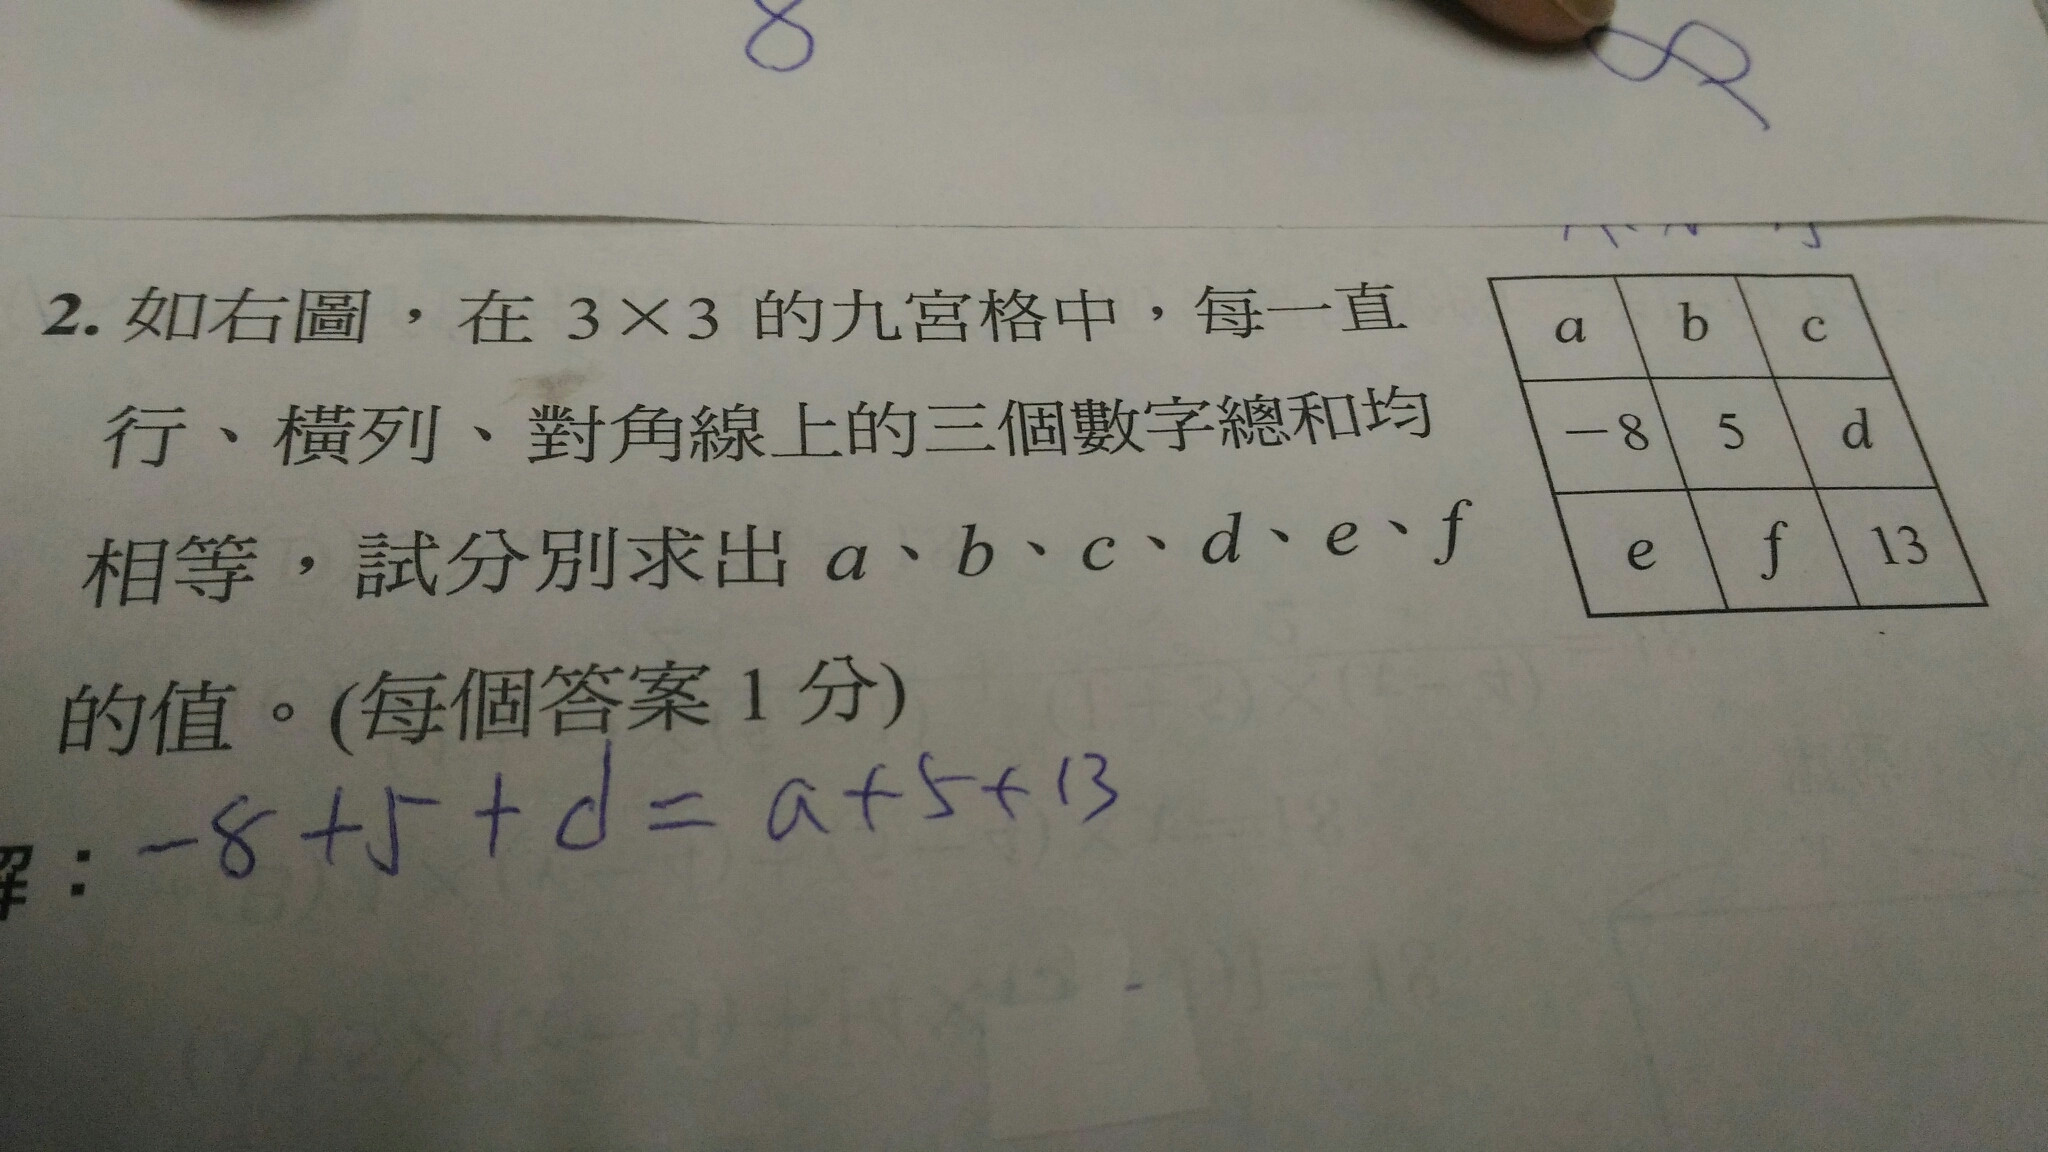 8
8
2. 如右圖，在 3×3 的九宮格中，每一直
行、橫列、對角線上的三個數字總和均
相等，試分別求出 a、b、c、d、e、f
的值。(每個答案 1 分)
a b c
－8 5 d
e f 13
解：-8+5+d=a+5+13